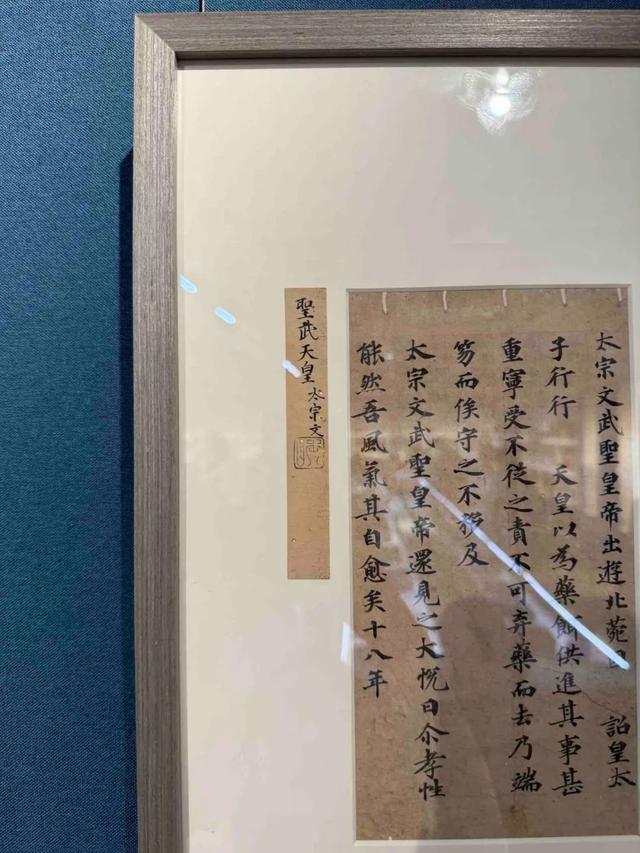 太宗文武聖皇帝出遊北苑因 詔皇太
子行行 天皇以為藥餌供進其事甚
重寧受不從之責不可弃藥而去乃端
笏而俟守之不移及
太宗文武聖皇帝還見之大悅曰尒孝性
能然吾風氣其自愈矣十八年
聖武天皇 太宗文